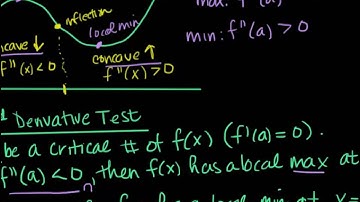 max: f"(a)
inflection
local min
min: f"(a) > 0
concave ↓
f"(x) < 0
concave ↑
f"(x) > 0
Derivative Test
be a critical # of f(x) (f'(a) = 0).
f"(a) < 0, then f(x) has a local max at
local min at x =